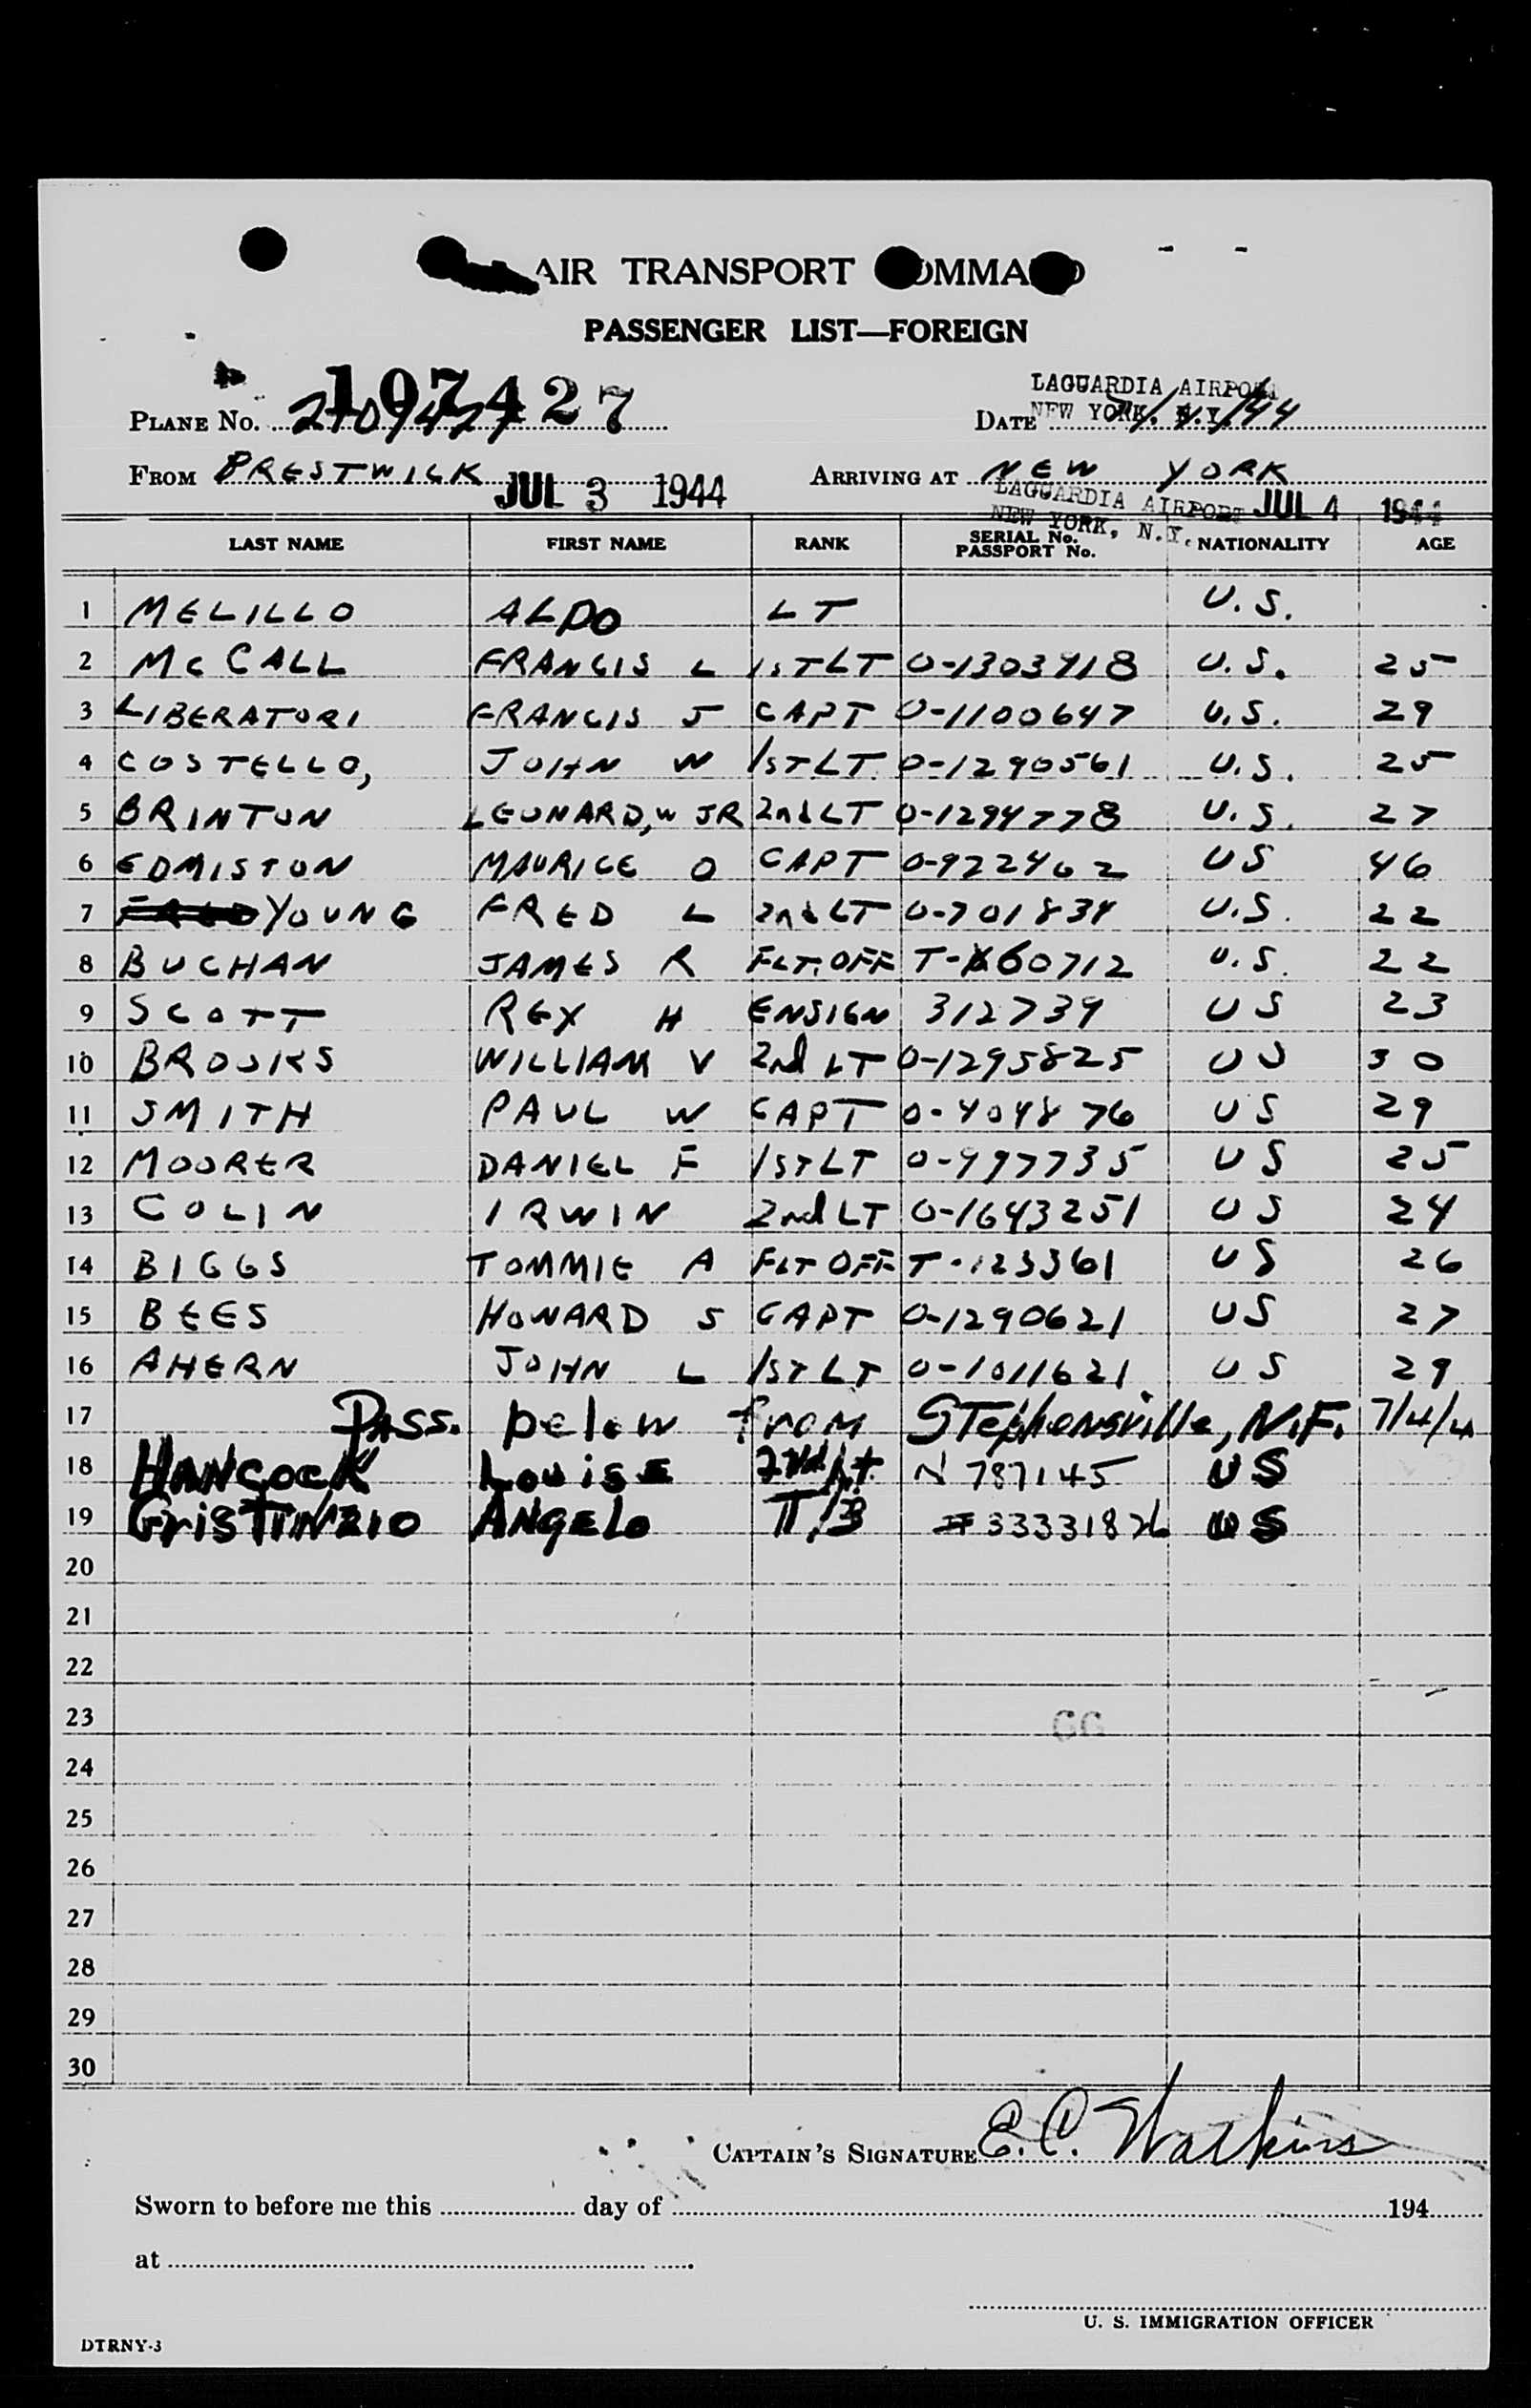 AIR TRANSPORT COMMAND
PASSENGER LIST—FOREIGN
107427
LAGUARDIA AIRPORT
NEW YORK, N.Y.
PLANE No. DATE
FROM PRESTWICK JUL 3 1944 ARRIVING AT NEW YORK
LAGUARDIA AIRPORT JUL 4 1944
NEW YORK, N.Y.
LAST NAME FIRST NAME RANK SERIAL No. PASSPORT No. NATIONALITY AGE
1 MELILLO ALDO LT U.S.
2 McCALL FRANCIS L 1STLT O-1303918 U.S. 25
3 LIBERATORI FRANCIS J CAPT O-1100647 U.S. 29
4 COSTELLO, JOHN W 1STLT O-1290561 U.S. 25
5 BRINTON LEONARD, W JR 2ndLT O-1294778 U.S. 27
6 EDMISTON MAURICE O CAPT O-922462 US 46
7 YOUNG FRED L 2ndLT O-701834 U.S. 22
8 BUCHAN JAMES R FLT. OFF T-60712 U.S. 22
9 SCOTT REX H ENSIGN 312739 US 23
10 BROOKS WILLIAM V 2nd LT O-1295825 US 30
11 SMITH PAUL W CAPT O-404876 US 29
12 MOORER DANIEL F 1STLT O-997735 US 25
13 COLIN IRWIN 2nd LT O-1643251 US 24
14 BIGGS TOMMIE A FLT OFF T-123361 US 26
15 BEES HOWARD S CAPT O-1290621 US 27
16 AHERN JOHN L 1STLT O-1011621 US 29
17 Pass. below from Stephensville, N.F. 7/4/4
18 HANCOCK Louise 2nd Lt N 787145 US
19 GrisTiNzio ANgeLo T/3 # 33331826 US
20
21
22
23
66
24
25
26
27
28
29
30
CAPTAIN'S SIGNATURE E. C. Watkins
Sworn to before me this day of 194
at
U. S. IMMIGRATION OFFICER
DTRNY-3